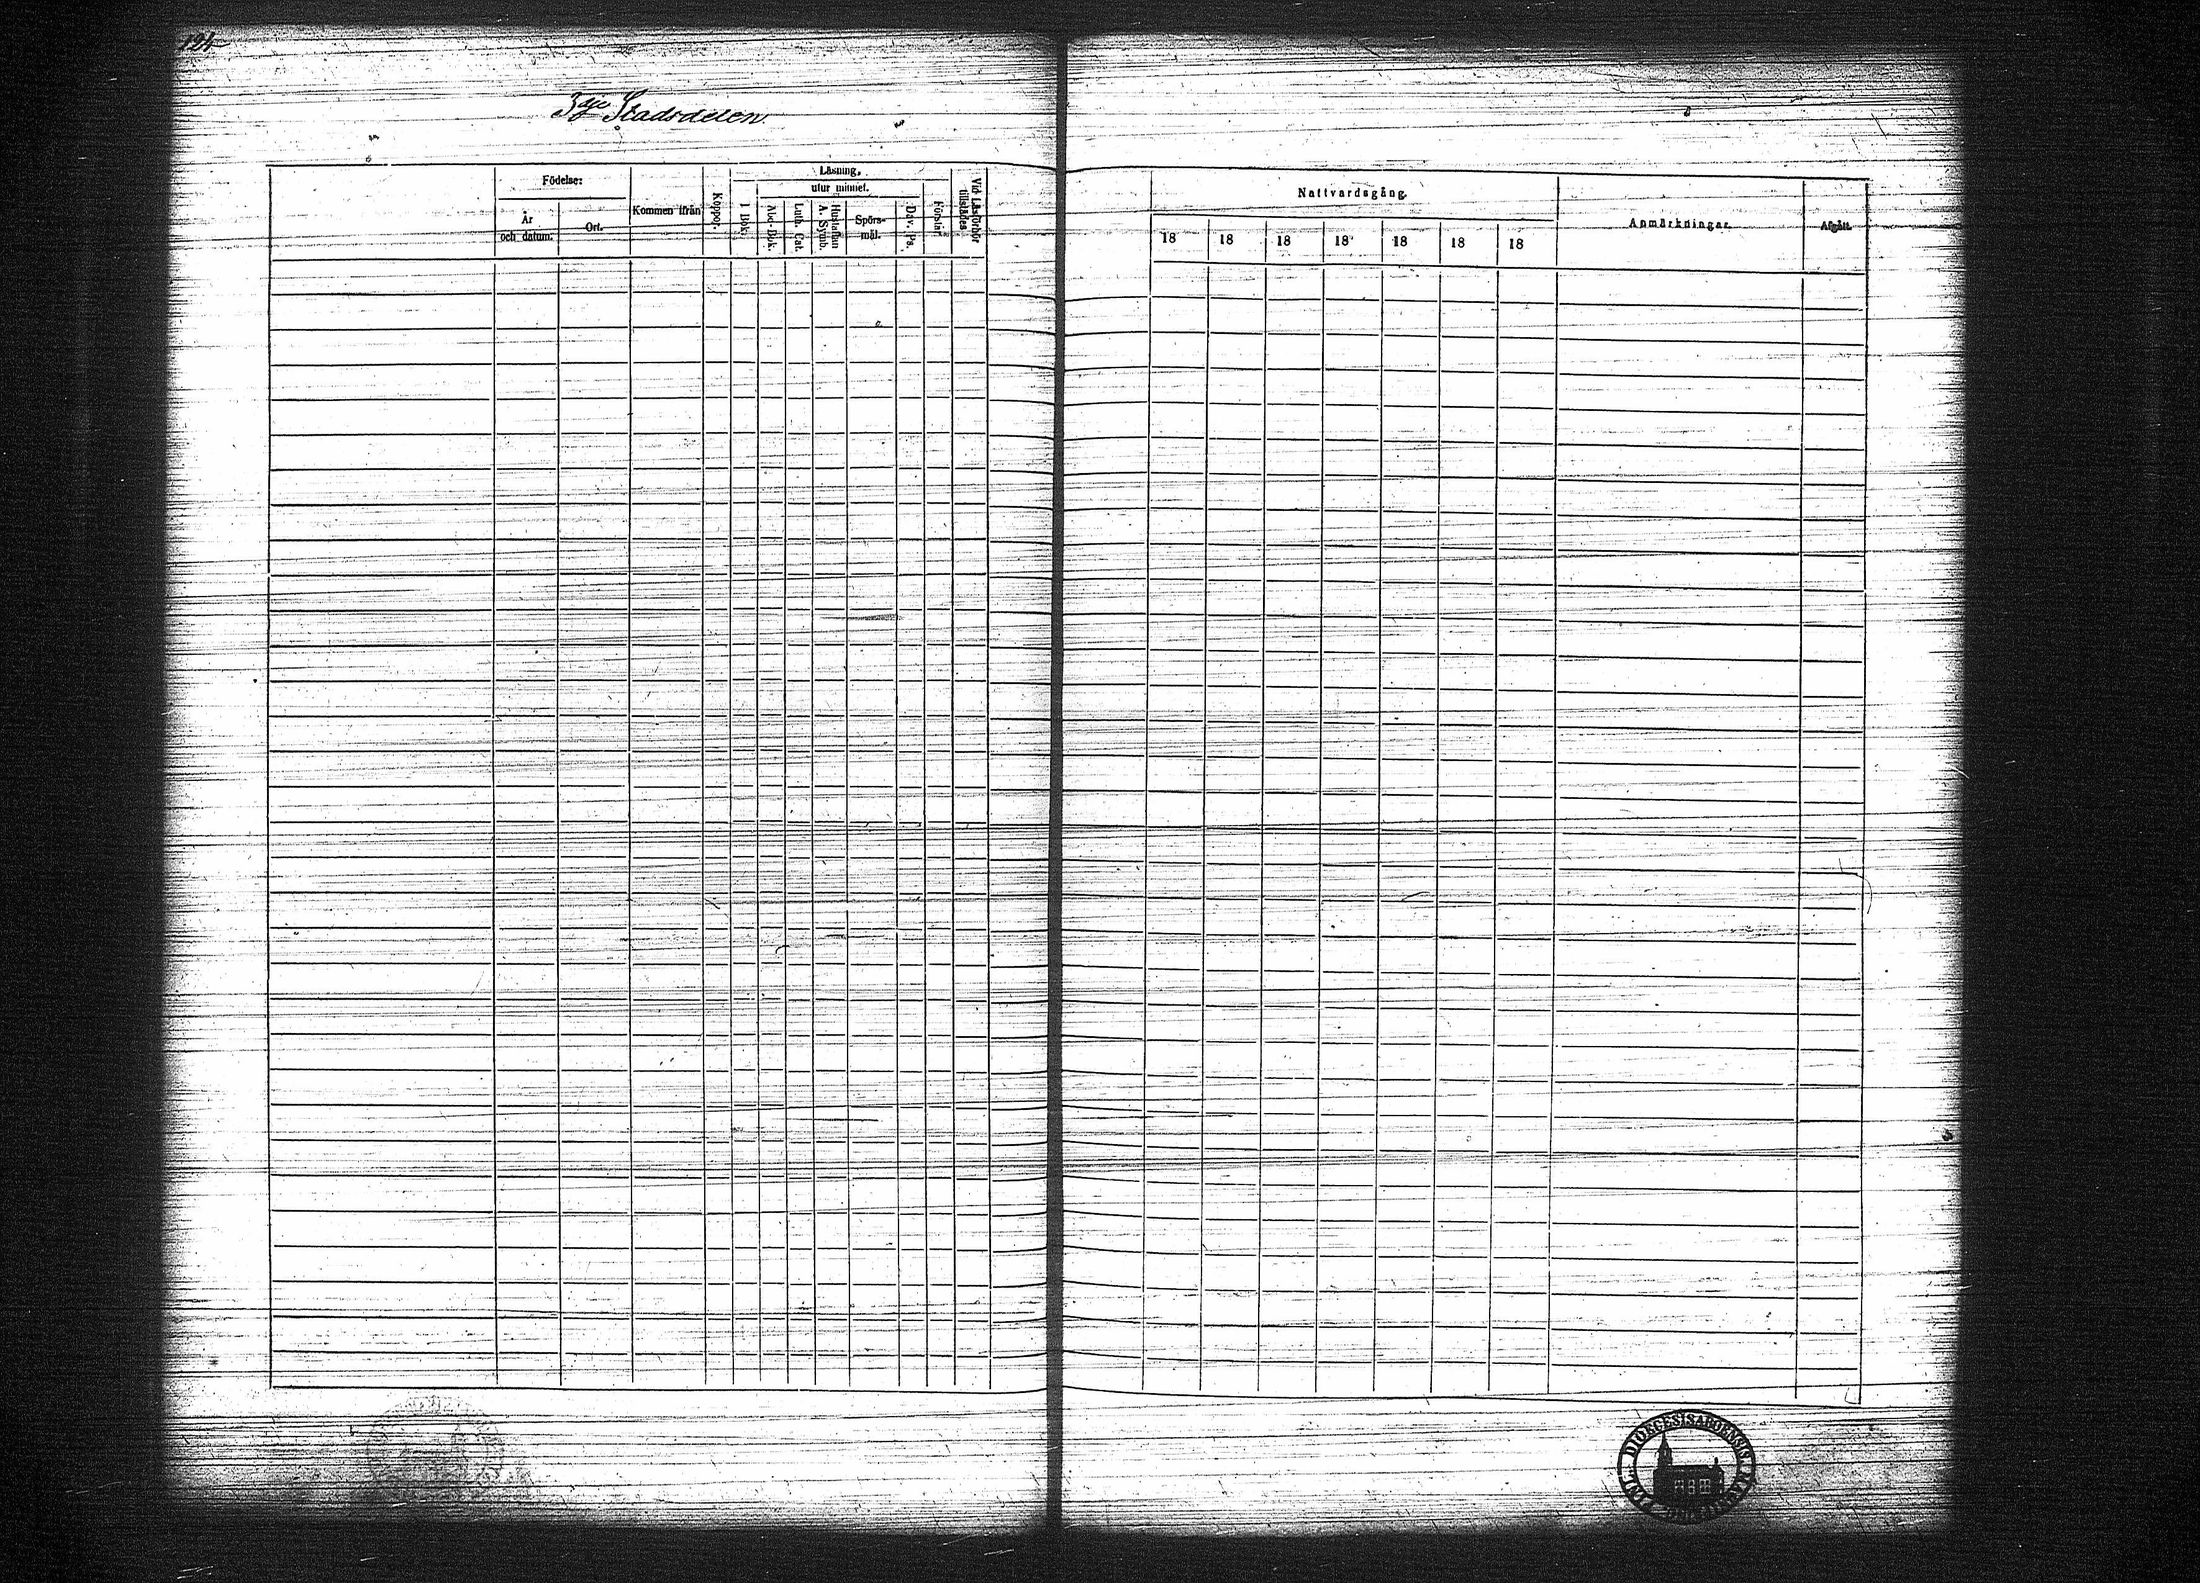 124
3dje Stadsdelen.
Födelse:
År och datum.
Ort.
Kommen ifrån
Koppor.
Läsning,
utur minnet.
I Bok.
Abc-Bok.
Luth. Cat.
Hustaflan A. Symb.
Spörs-mål.
Dav. Ps.
Förstår
Vid Läsförhör tillstädes
Nattvardsgång.
18 18 18 18 18 18 18
Anmärkningar.
Afgått.
DIOECESIS ABOENSIS